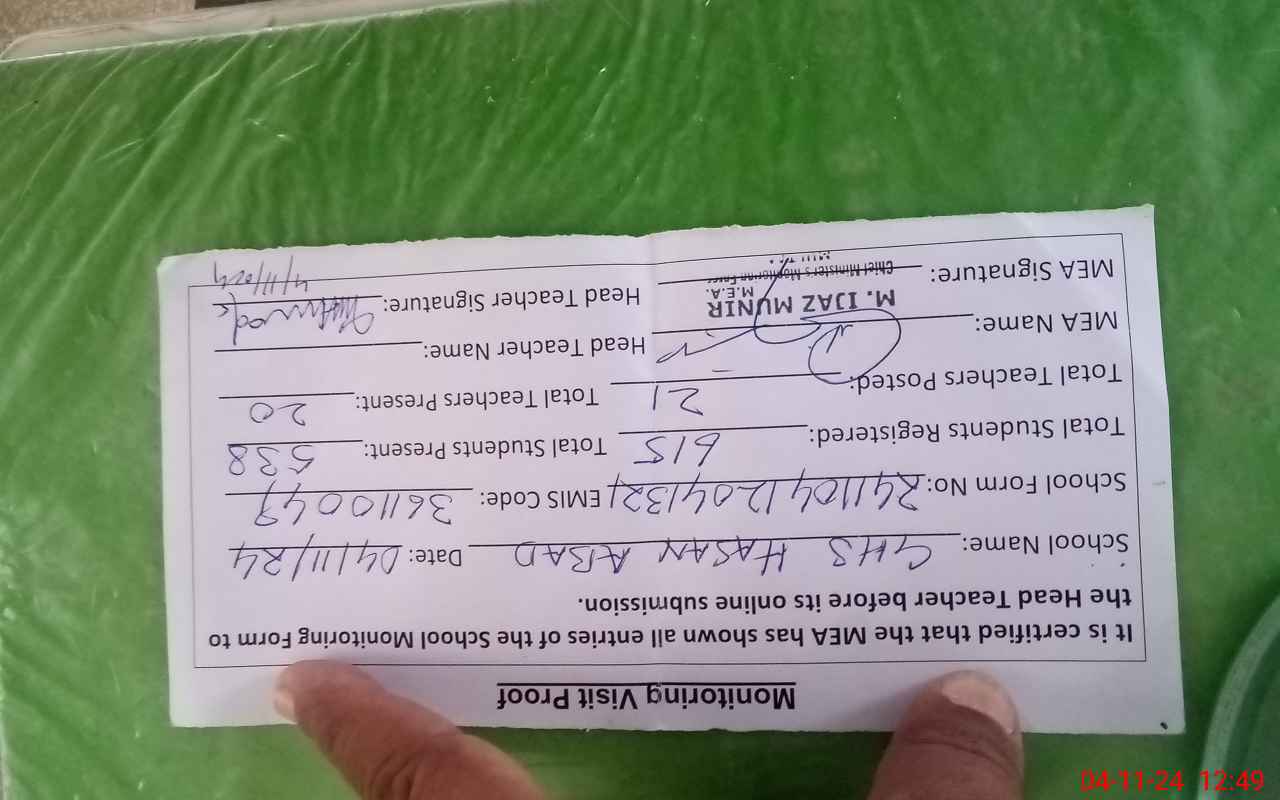 Monitoring Visit Proof
It is certified that the MEA has shown all entries of the School Monitoring Form to
the Head Teacher before its online submission.
School Name: GHS HASAN ABAD Date: 04/11/24
School Form No: 24110412041321 EMIS Code: 36110047
Total Students Registered: 615 Total Students Present: 538
Total Teachers Posted: 21 Total Teachers Present: 20
MEA Name: Head Teacher Name:
M. IJAZ MUNIR
M.E.A.
MEA Signature: Head Teacher Signature:
Chief Minister's Monitoring Force
4/11/024
04-11-24 12:49